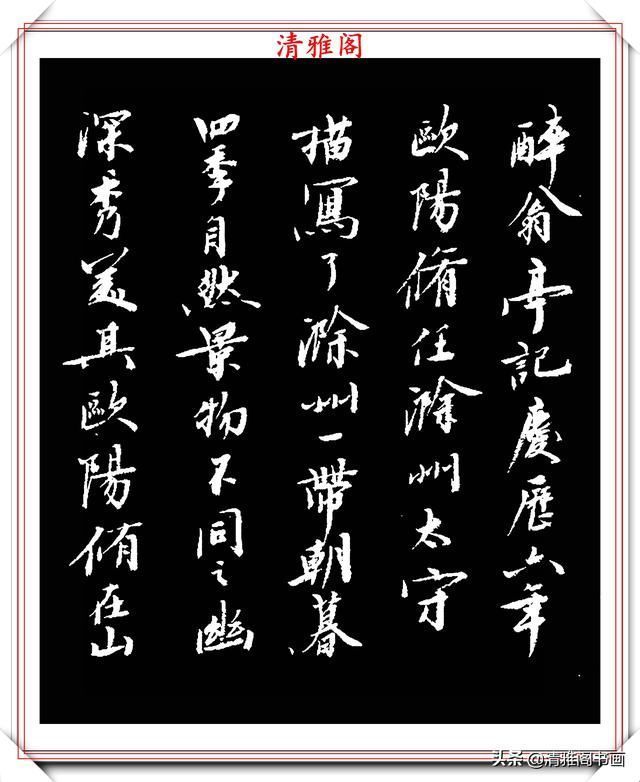 清雅阁
醉翁亭記慶歷六年
歐陽脩任滁州太守
描寫了滁州一帶朝暮
四季自然景物不同之幽
深秀美具歐陽脩在山
头条@清雅阁书画